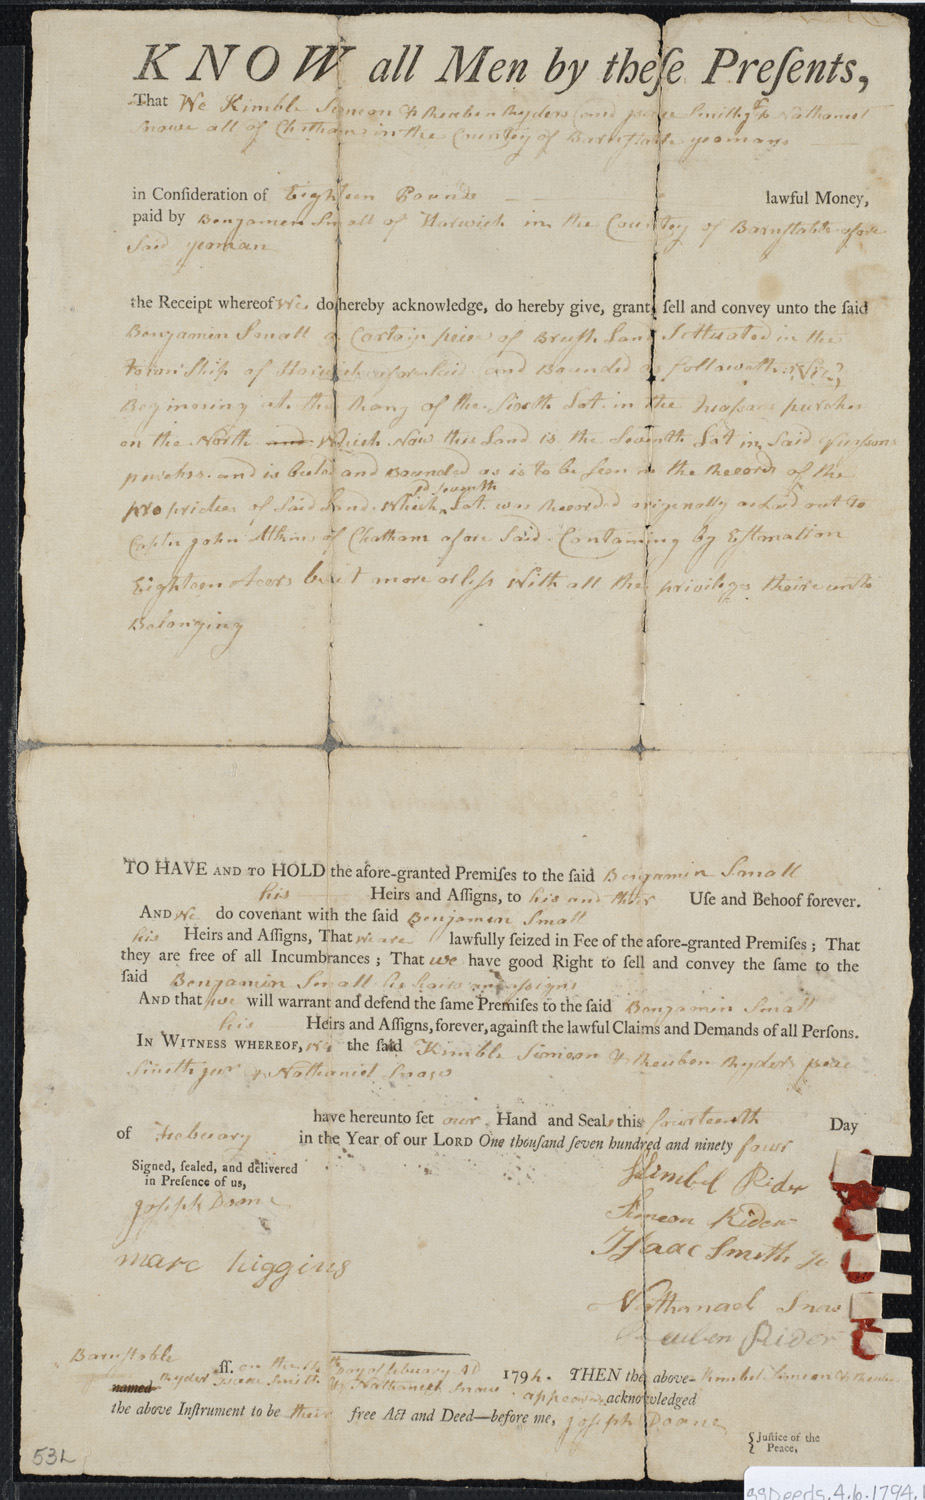 KNOW all Men by theſe Preſents,
That We Kimble Simeon & Reuben Ryders and Smith Jr & Nathaniel
Snow all of Chatham in the Countey of Barnstable yeomans
in Conſideration of Eighteen Pounds lawful Money,
paid by Benjamen Small of Harwich in the Countey of Barnstable afore
Said yeoman
the Receipt whereof We do hereby acknowledge, do hereby give, grant, ſell and convey unto the ſaid
Benjamin Small a Certain peice of Brush Land Sittuated in the
township of Harwich afore Said and Bounded as followeth Viz
Beginning at the Rang of the Sixth Lot in the
on the North and Which Now this Land is the Seventh Lot in Said
and is and Bounded as is to be Seen in the Records of the
proprietees of Said Land Which sd Seventh Lot was Recorded originally as Laid out to
Captn John Atkins of Chatham afore Said. Containing by Estamation
Eighteen Acers be it more or less With all the privileges theire unto
Belonging
TO HAVE AND TO HOLD the afore-granted Premiſes to the ſaid Benjamin Small
his Heirs and Aſſigns, to his and their Uſe and Behoof forever.
AND We do covenant with the ſaid Benjamin Small
his Heirs and Aſſigns, That we are lawfully ſeized in Fee of the afore-granted Premiſes ; That
they are free of all Incumbrances ; That we have good Right to ſell and convey the ſame to the
ſaid Benjamin Small his
AND that we will warrant and defend the ſame Premiſes to the ſaid Benjamin Small
his Heirs and Aſſigns, forever, againſt the lawful Claims and Demands of all Perſons.
IN WITNESS WHEREOF, We the ſaid Kimble Simeon & Reuben Ryders
Smith & Nathaniel Snow
have hereunto ſet our Hand and Seals this fourteenth Day
of Febuary in the Year of our LORD One thouſand ſeven hundred and ninety four
Signed, ſealed, and delivered
in Preſence of us,
Joseph Doane
marc higgins
Kimbel Rider
Simeon Rider
Isaac Smith Jr
Nathanael Snow
Reuben Rider
Barnstable
ſſ. on the 14th Day of February AD 1794. THEN the above- Kimbel Simeon & Reuben
named Ryder Isaac Smith & Nathaniel Snow appeared acknowledged
the above Inſtrument to be their free Act and Deed—before me, Joseph Doane
Juſtice of the
Peace,
53L
ggDeeds.4.b.1794.